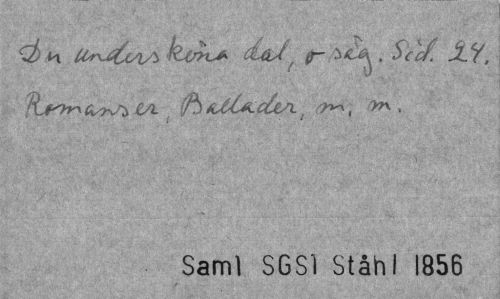 Du undersköna dal, o säg. Sid. 24.
Romanser, Ballader, m. m.
Saml SGS1 Ståhl 1856